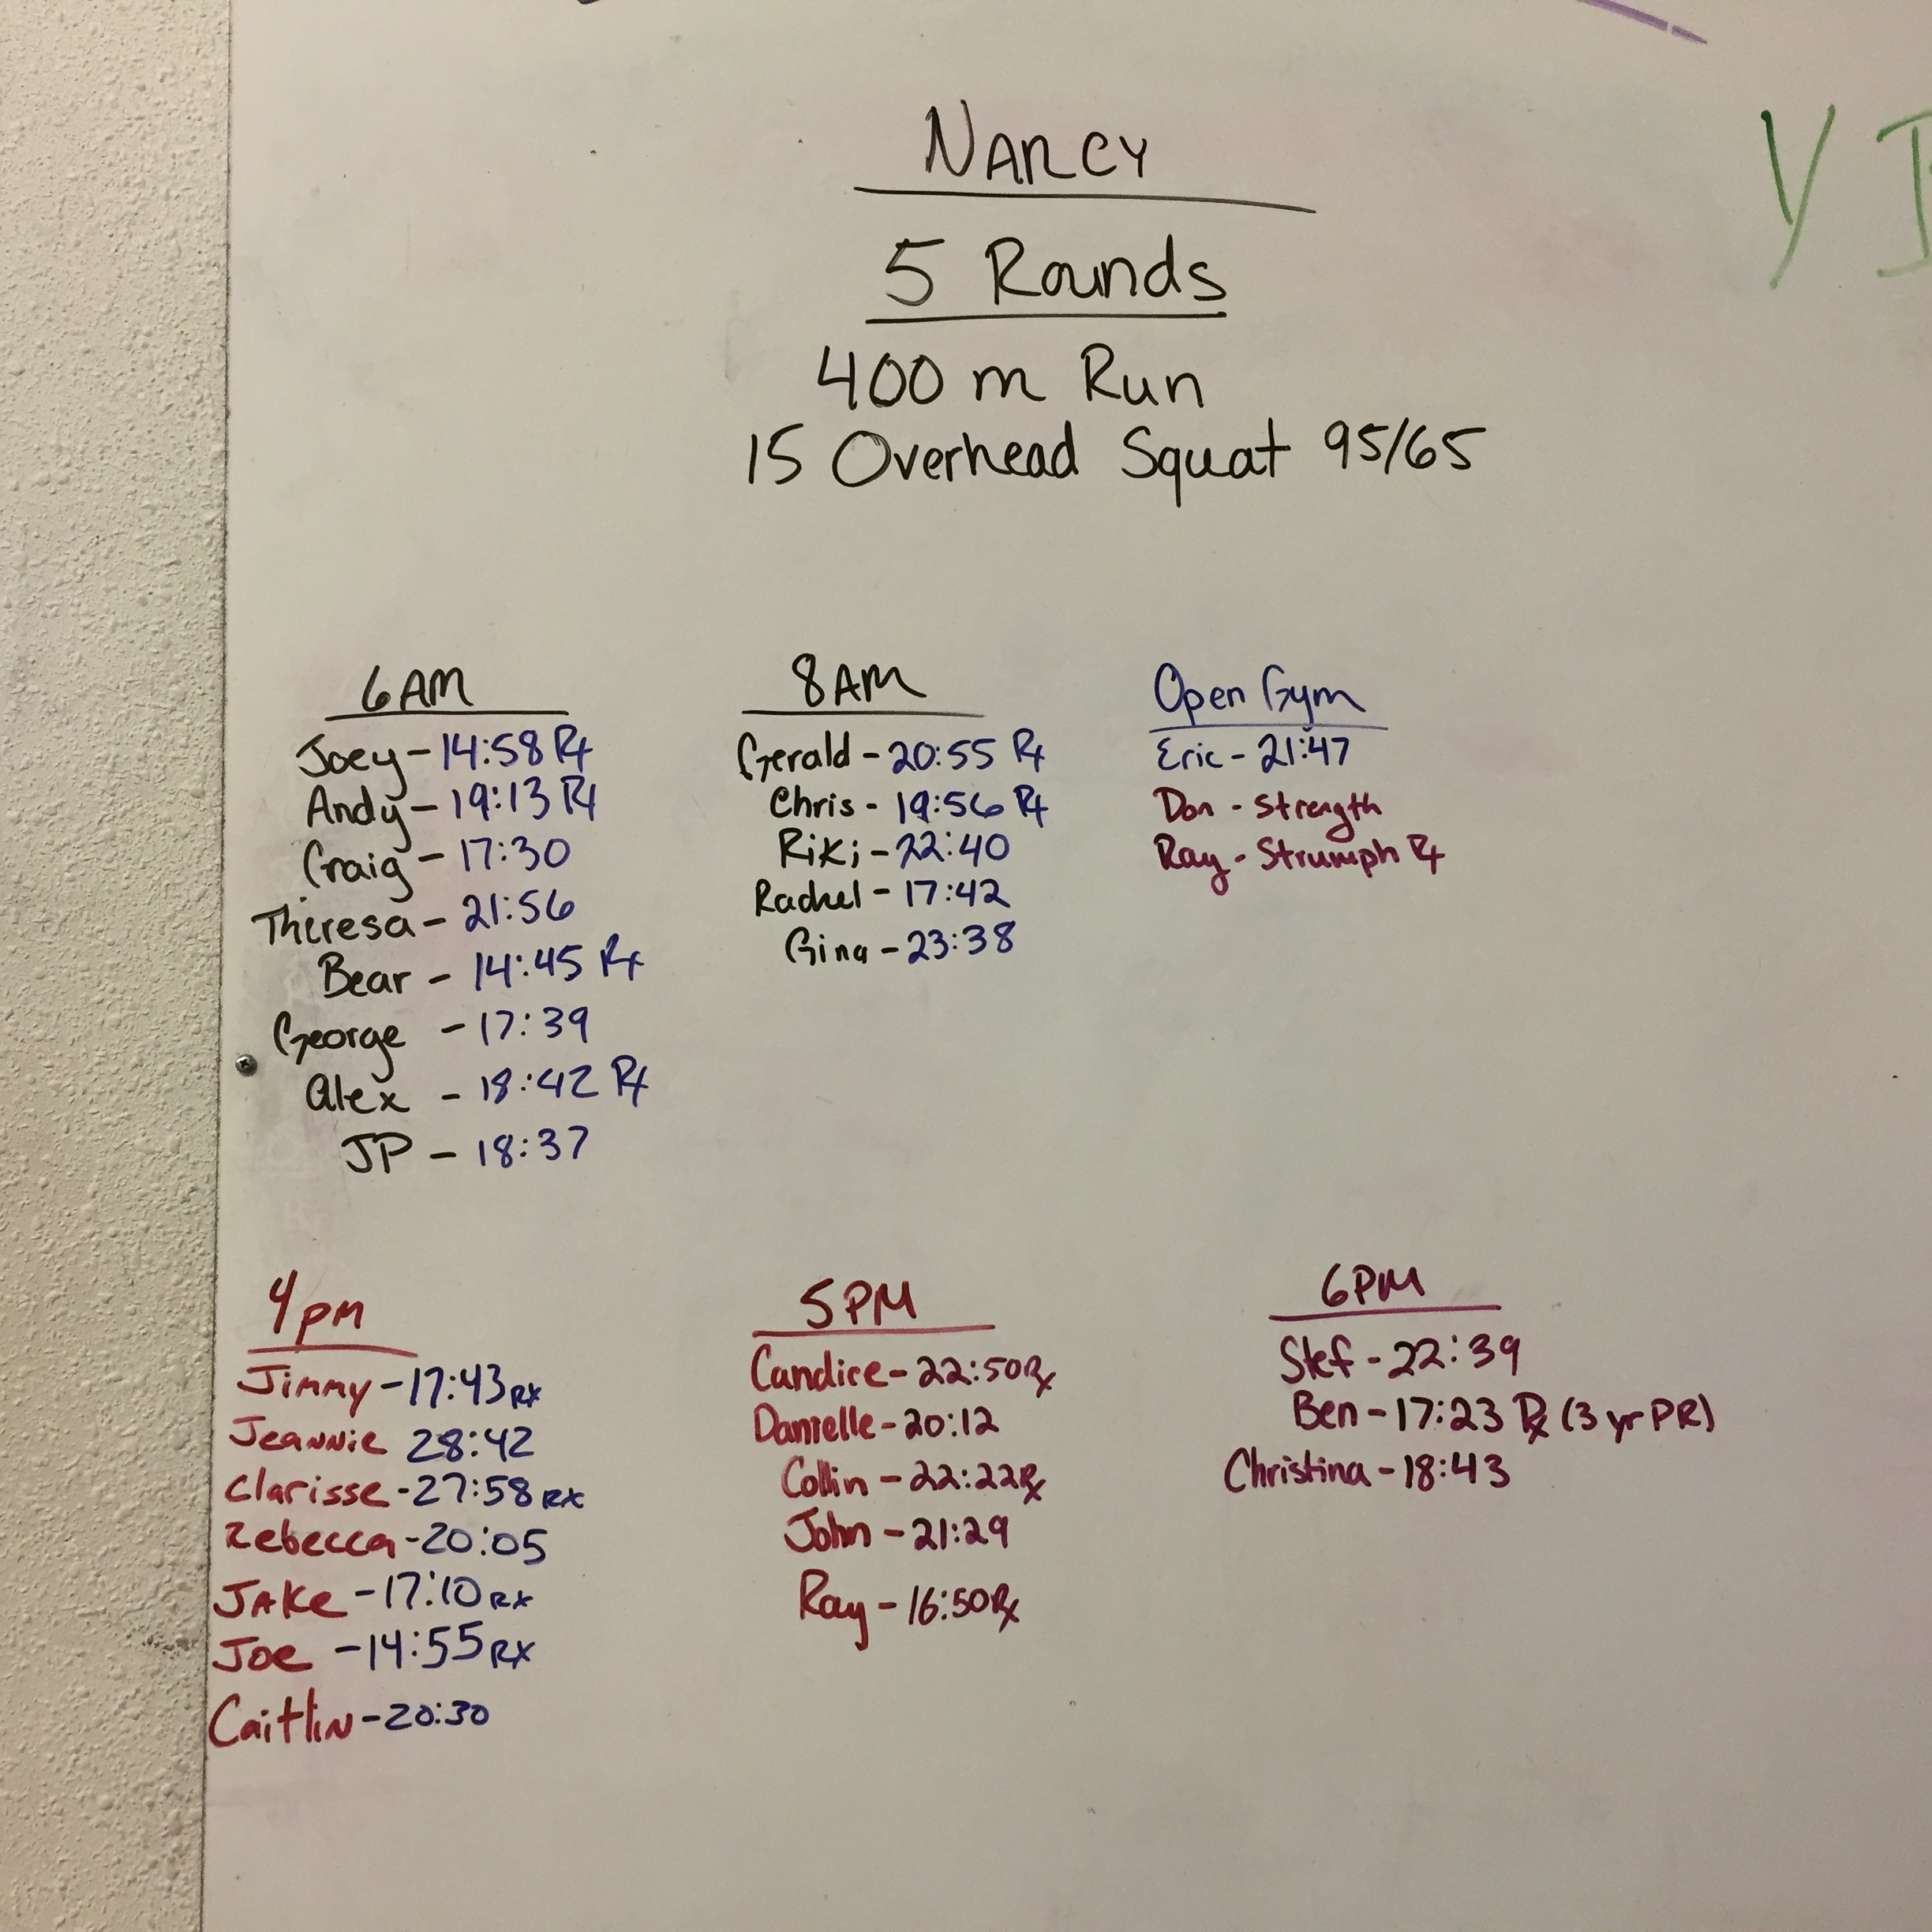 NANCY
5 Rounds
400 m Run
15 Overhead Squat 95/65
6AM
Joey - 14:58 Rx
Andy - 19:13 Rx
Craig - 17:30
Theresa - 21:56
Bear - 14:45 Rx
George - 17:39
Alex - 18:42 Rx
JP - 18:37
8AM
Gerald - 20:55 Rx
Chris - 19:56 Rx
Riki - 22:40
Rachel - 17:42
Gina - 23:38
Open Gym
Eric - 21:47
Don - Strength
Ray - Strumph Rx
4pm
Jimmy - 17:43 RX
Jeannie 28:42
Clarisse - 27:58 RX
Rebecca - 20:05
JAKe - 17:10 RX
Joe - 14:55 RX
Caitlin - 20:30
5PM
Candice - 22:50 Rx
Danielle - 20:12
Collin - 22:22 Rx
John - 21:29
Ray - 16:50 Rx
6PM
Stef - 22:39
Ben - 17:23 Rx (3 yr PR)
Christina - 18:43